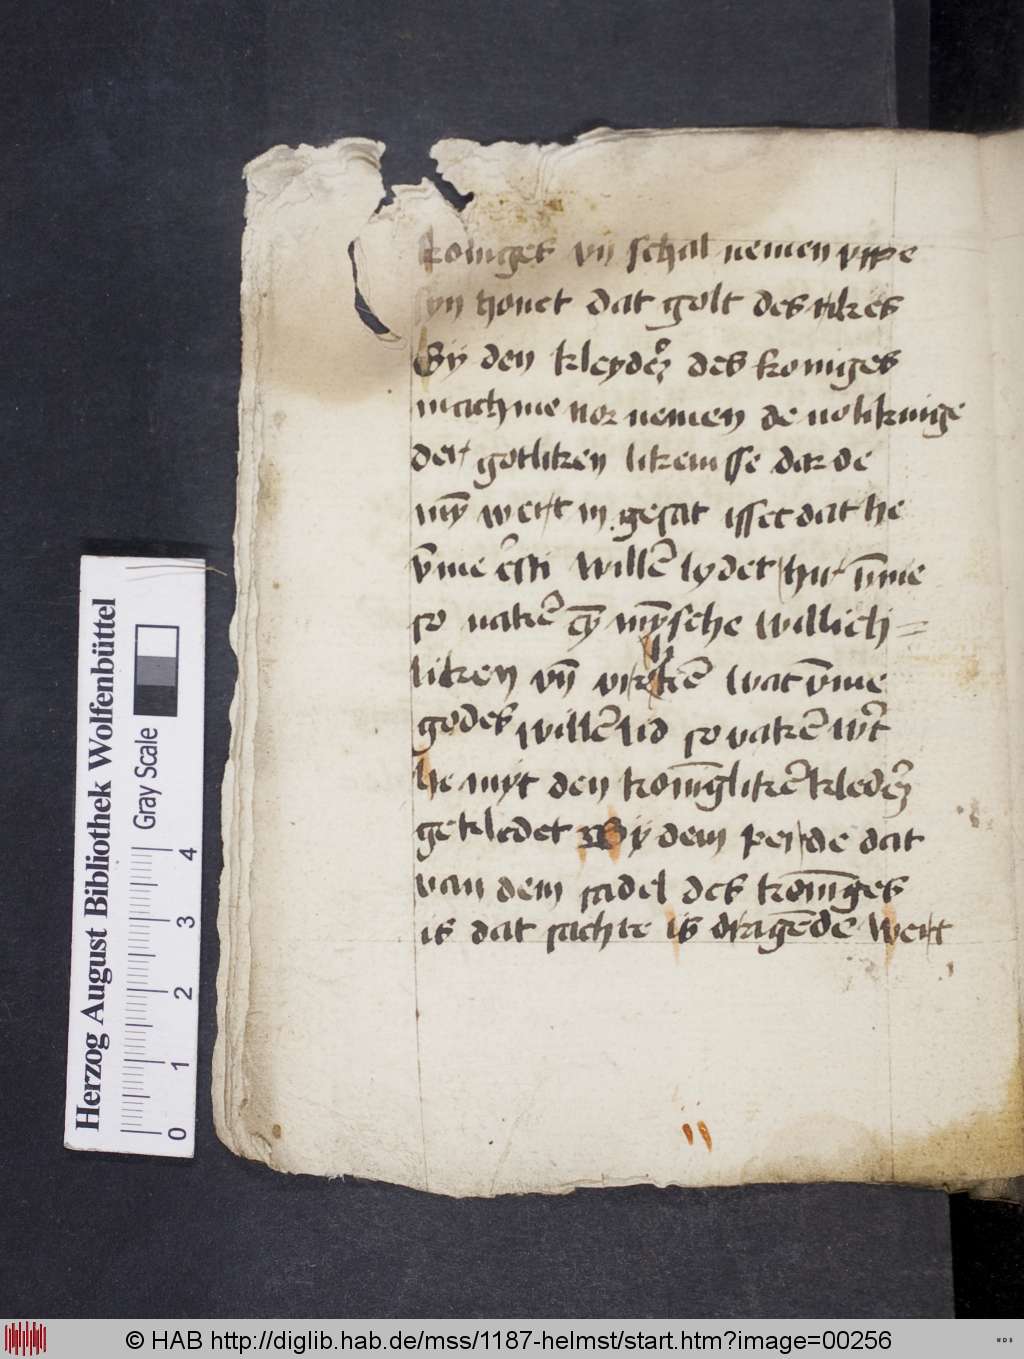 koniges vn̄ schal nemen vppe
syn houet dat golt des rikes
By den kleyder̃ des koniges
mach me vor nemen de uolikinige
der gotliken likenisse dar de
my̅ wert in gesat isset dat he
v̄me cr̄sti willē lydet hir v̄me
so vakē ey̅ my̅sche willich=
liken vn̄ vrolikē wat v̄me
godes willē lid so vakē wert
he myt den konīglikē kleder̃
gekledet By dem perde dat
van dem sadel des konīges
is dat sachte is dragēdē wert
Herzog August Bibliothek Wolfenbüttel
Gray Scale
0 1 2 3 4
© HAB http://diglib.hab.de/mss/1187-helmst/start.htm?image=00256
WDB